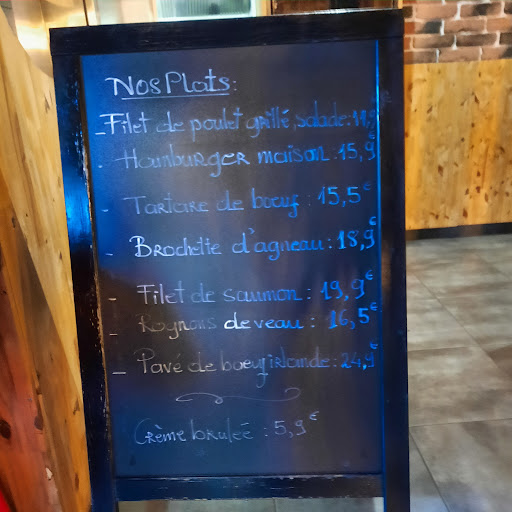 Nos Plats:
- Filet de poulet grillé, salade: 11,9€
- Hamburger maison: 15,9€
- Tartare de boeuf: 15,5€
- Brochette d'agneau: 18,9€
- Filet de saumon: 19,9€
- Rognons de veau: 16,5€
- Pavé de boeuf irlande: 24,9€
Crème brulée: 5,9€